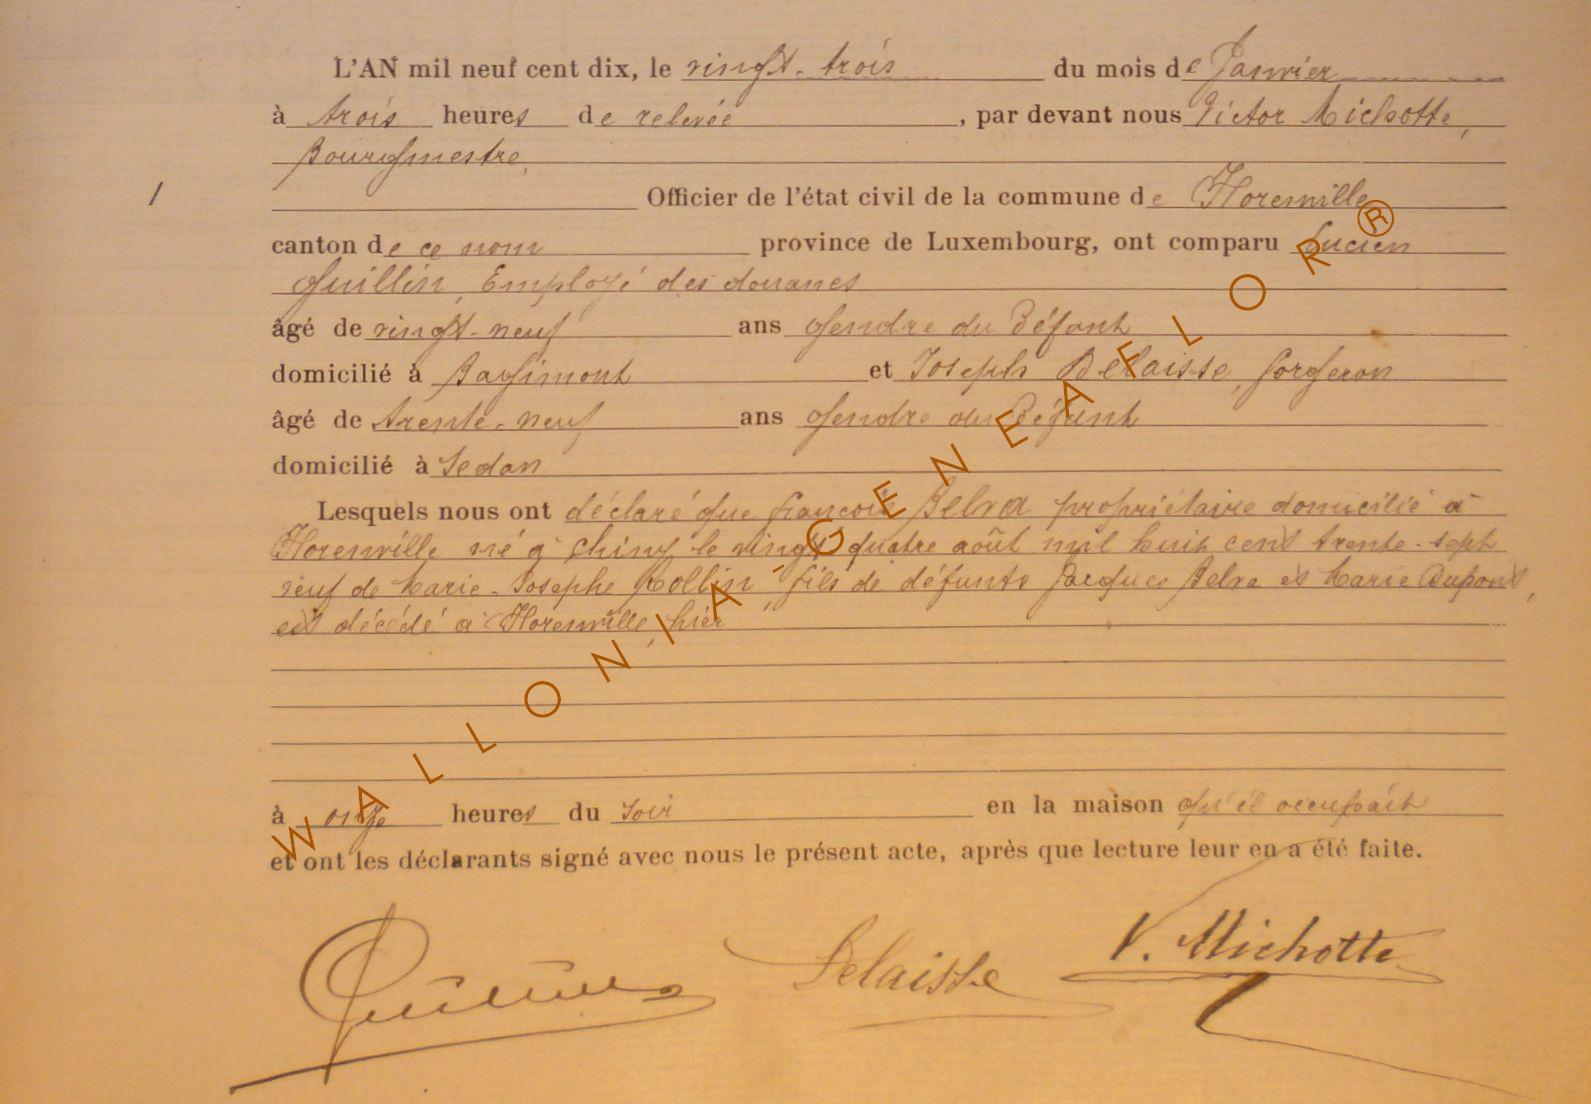 L'AN mil neuf cent dix, le vingt-trois du mois de Janvier
à trois heures de relevée, par devant nous Victor Michotte,
Bourgmestre,
1 Officier de l'état civil de la commune de Florenville
canton de ce nom province de Luxembourg, ont comparu Lucien
Guillin, Employé des douanes
âgé de vingt-neuf ans gendre du Défunt
domicilié à Bagimont et Joseph Delaisse, forgeron
âgé de trente-neuf ans gendre du Défunt
domicilié à Sedan
Lesquels nous ont déclaré que françois Belva propriétaire domicilié à
Florenville né à Chiny le vingt quatre août mil huit cent trente-sept
veuf de Marie-Josephe Collin, fils de défunts Jacques Belva et Marie Dupont,
est décédé à Florenville, hier
à onze heures du soir en la maison qu'il occupait
et ont les déclarants signé avec nous le présent acte, après que lecture leur en a été faite.
Guillin Delaisse V. Michotte
WALLONIA-GENEAFLOR®